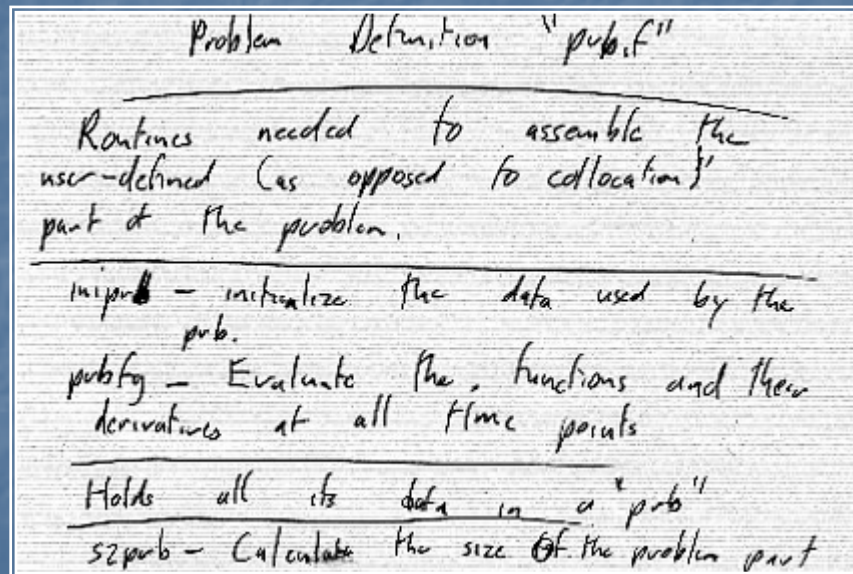 Problem Definition "prb.f"
Routines needed to assemble the
user-defined (as opposed to collocation)
part of the problem.
iniprb - initialize the data used by the
prb.
prbfg - Evaluate the functions and their
derivatives at all time points
Holds all its data in a "prb"
szprb - Calculate the size of the problem part